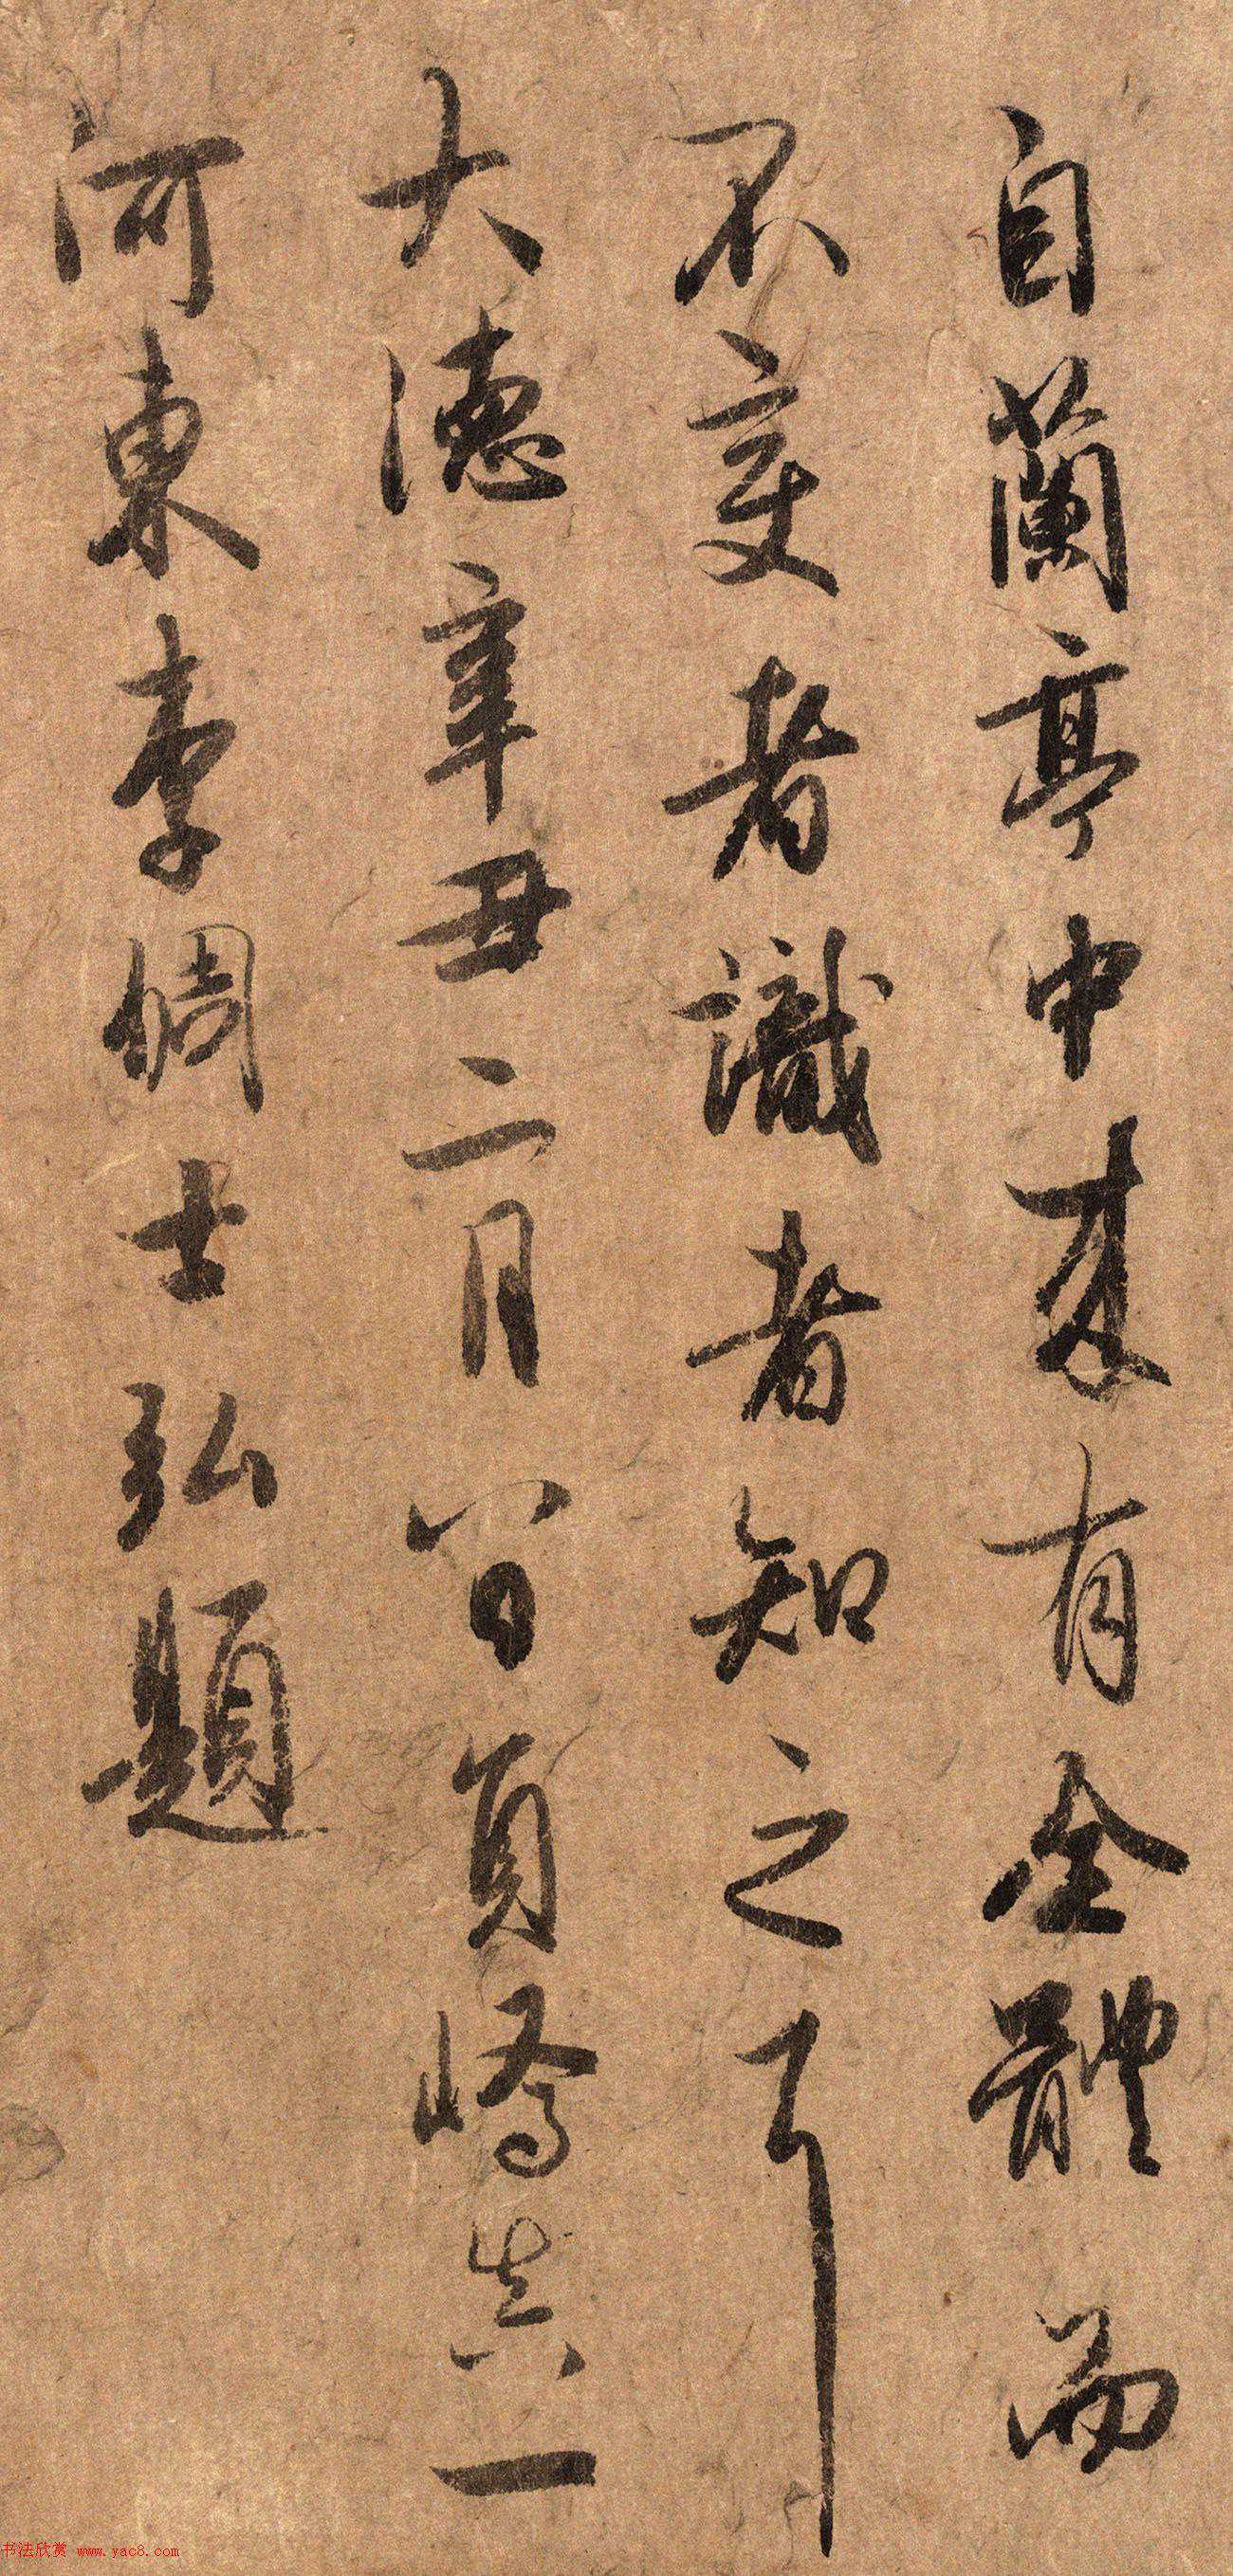 自蘭亭中來有全體而
不变者識者知之耳
大德辛丑二月八日員嶠真一
河東李倜士弘題
书法欣赏 www.yac8.com